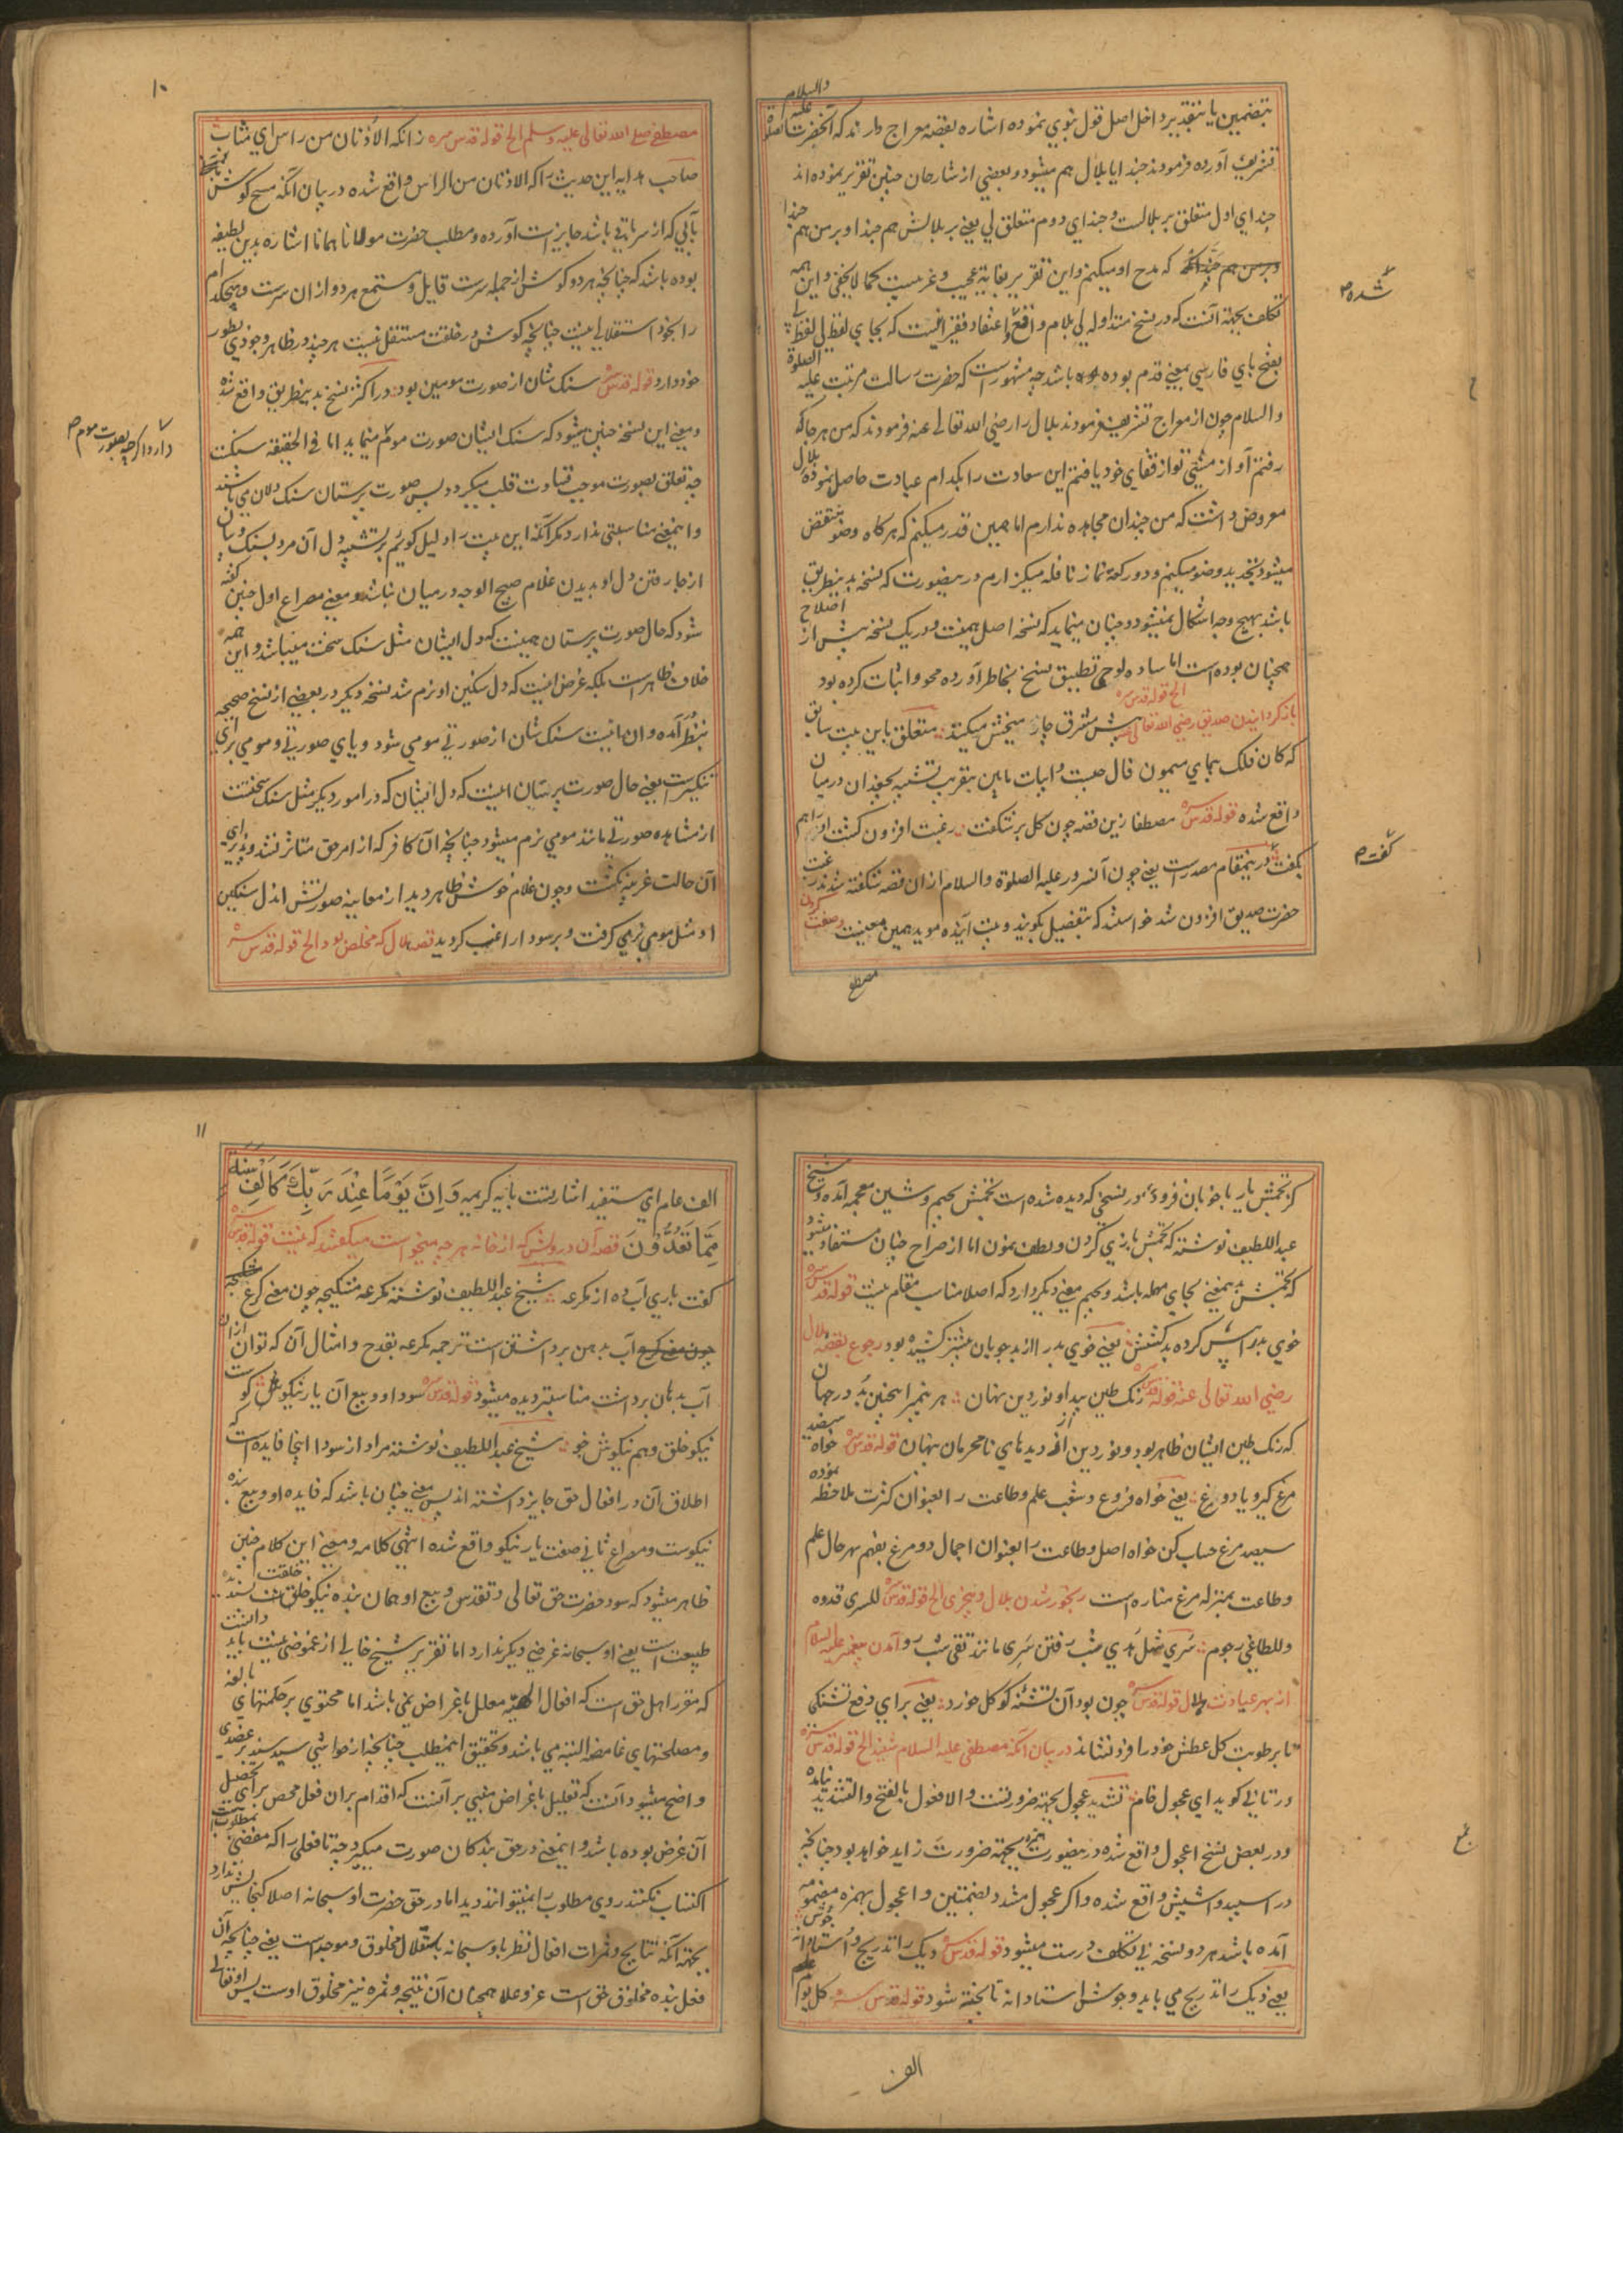 بتضمین یا بتقدیر داخل اصل قول نبوی نموده اشاره بقصه معراج دارند که آنحضرت علیه الصلوة والسلام
تشریف آورده فرمودند حبذا یا بلال هم میشود و بعضی از شارحان چنین تقریر نموده اند
حبذای اول متعلق بر بلالست و حبذای دوم متعلق لی یعنی بر بلالش هم حبذا و بر من هم حبذا
که مدح او میکنم و این تقریر بغایة عجیب و غریبست کما لا یخفی و این همه
تکلف بجهة آنست که در نسخ متداوله لی بلام واقع و اعتقاد فقیر اینست که بجای لفظ لی لفظ پی
شده ص
بفتح بای فارسی بمعنی قدم بوده باشد چه مشهور است که حضرت رسالت مرتبت علیه الصلوة
والسلام چون از معراج تشریف فرمودند بلال را رضی الله تعالی عنه فرمودند که من هر جا که
رفتم آواز مشی تو از قفای خود یافتم این سعادت را بکدام عبادت حاصل نموده بلال
معروض داشت که من چندان مجاهده ندارم اما همین قدر میکنم که هر گاه وضو منتقض
میشود تجدید وضو میکنم و دو رکعة نماز نافله میگزارم درینصورت که نسخه بدینطریق
باشد بهیچ وجه اشکال نمیشود و چنان مینماید که نسخه اصل همینست و در یک نسخه پیش از اصلاح
همچنان بوده است اما ساده لوحی تطبیق نسخ بخاطر آورده محو و اثبات کرده بود
باز گردانیدن صدیق رضی الله تعالی عنه الخ قوله قدس سره پیش مشرق چارمیخش میکنند متعلق باین بیت سابق
که کان فلک بجای میمون فال جست و ابیات مابین بتقریب تشبیه بجغدان در میان
واقع شده قوله قدس سره مصطفا زین قصه چون گل بر شکفت رغبت افزون گشت او را هم
بگفت درینمقام مصدرست یعنی چون آنسرور علیه الصلوة والسلام ازان قصه شکفته شدند رغبت
گفت ص
حضرت صدیق افزون شد خواستند که بتفصیل بگویند و بیت آینده موید همین معنیست وصیت کردن
مصطفی
۱۰
مصطفی صلی الله تعالی علیه وسلم الخ قوله قدس سره زانکه الاذنان من راس ای مثاب
صاحب هدایه این حدیث را که الاذنان من الراس واقع شده در بیان آنکه مسح گوش
بآبی که از سر باقی باشد جایز است آورده و مطلب حضرت مولانا همانا اشاره بدین لطیفه
بوده باشد که چنانچه هر دو گوش از جمله سرست قایل و مستمع هر دو ازان سرست و هیچکدام
را بخود استقلالی نیست چنانچه گوش در خلقت مستقل نیست هر چند در ظاهر وجودی بطور
خود دارد قوله قدس سره سنگ شان از صورت مومین بود در اکثر نسخ بدینطریق واقع شده
و معنی این نسخه چنین میشود که سنگ ایشان صورت موم مینماید اما فی الحقیقه سنگست
دارد اگر چه بصورت موم ص
چه تعلق بصورت موجب قساوت قلب میگردد پس صورت پرستان سنگ دلان می باشند
و اینمعنی مناسبتی ندارد مگر آنکه این بیت را دلیل گوئیم بر تشبیه دل آن مرد بسنگ و بیان
از جا رفتن دل او بدیدن غلام صبیح الوجه در میان نباشد و معنی مصراع اول چنین گفته
شود که حال صورت پرستان همینست که دل ایشان مثل سنگ سخت میباشد و این همه
خلاف ظاهر است بلکه غرض اینست که دل سنگین او نرم شد نسخه دیگر در بعضی از نسخ صحیحه
بنظر آمده و آن اینست سنگ شان از صورتی مومی شود و یای صورتی و مومی برای
تنکیرست یعنی حال صورت پرستان اینست که دل ایشان که در امور دیگر مثل سنگ سختست
از مشاهده صورتی مانند مومی نرم میشود چنانچه آن کافر که از امر حق متاثر نشد و پذیرای
آن حالت غریبه نگشت و چون غلام خوش ظاهر دید از معاینه صورتش اندل سنگین
او مثل مومی نرمی گرفت و بر سودا راغب گردید قصه هلال که مخلص بود الخ قوله قدس سره
کژ تجمش یار با خوبان فرود در نسخی که دیده شده است تجمش بجیم و شین معجمه آمده و شیخ
عبد اللطیف نوشته که تجمش بازی کردن و لطف نمودن اما از صراح چنان مستفاد میشود
که تجمش بدینمعنی بجای مهمله باشد و بجیم معنی دیگر دارد که اصلا مناسب مقام نیست قوله قدس سره
خوی بد را پس کرده بد کشش یعنی خوی بد را از بد خوبان بیشتر کشیده بود رجوع بقصه بلال
رضی الله تعالی عنه قوله قدس سره رنگ طین پیدا و نور دین نهان هر پیمبر اینچنین بد در جهان
که رنگ طین ایشان ظاهر بود و نور دین از دیدهای نامحرمان پنهان قوله قدس سره خواه سیصد
مرغ گیر و یا دو مرغ یعنی خواه فروع و شعب علم و طاعت را بعنوان کثرت ملاحظه نموده
سیصد مرغ حساب کن خواه اصل و طاعت را بعنوان اجمال دو مرغ بفهم بهر حال علم
و طاعت بمنزله مرغ مناره است رنجور شدن بلال و بیخبری الخ قوله قدس سره للسری قدوه
وللطاغی رجوم سری مثل هدی شب رفتن سری مانند تقی شب رو آمدن پیغمبر علیه السلام
از بهر عیادت هلال قوله قدس سره چون بود آن تشنه کو گل خورد یعنی برای دفع تشنگی
تا برطوبت گل عطش خود را فرو نشاند در بیان آنکه مصطفی علیه السلام شنید الخ قوله قدس سره
در تانی گوید ای عجول خام تشدید عجول بجهة ضرورتست والا فعول بالفتح والتشدید نیامده
و در بعض نسخ اعجول واقع شده درینصورت همزه بجهة ضرورت زاید خواهد بود چنانچه
در اسپید و اشپش واقع شده و اگر عجول مشدد بضمتین و اعجول بهمزه مضمومه
آمده باشد هر دو نسخه بی تکلف درست میشود قوله قدس سره دیگ را تدریج و استادانه جوش
یعنی دیگ را تدریج می باید و جوش استادانه تا پخته شود قوله قدس سره کل یوم
الف
۱۱
الف عام ای مستفید اشارتست بآیه کریمه وَاِنَّ یَوْمًا عِنْدَ رَبِّكَ كَاَلْفِ سَنَةٍ
مِمَّا تَعُدُّوْنَ قصه آن درویش که از خانه هر چه میخواست میگفتند که نیست قوله قدس سره
گفت باری آب ده از مکرعه شیخ عبد اللطیف نوشته مکرعه مشکیچه چون معنی کرع
آب بدهن برداشتن است ترجمه مکرعه بقدح و امثال آن که توان ازان
آب بدهان برداشت مناسبتر دیده میشود قوله قدس سره سود او و بیع آن یار نیکوست کو
نیکو خلق و هم نیکوش خو شیخ عبد اللطیف نوشته مراد از سود اینجا فایده است که
اطلاق آن در افعال حق جایز داشته اند پس معنی چنان باشد که فایده او و بیع بنده
نیکوست و مصراع ثانی صفت یار نیکو واقع شده انتهی کلامه و معنی این کلام چنین
ظاهر میشود که سود حضرت حق تعالی و تقدس و بیع او همان بنده نیکو خلقت پسندیده
طبیعت است یعنی او سبحانه غرضی دیگر ندارد اما تقریر شیخ خالی از غموضی نیست باید دانست
که مقرر اهل حق است که افعال الهیه معلل باغراض نمی باشد اما محتوی بر حکمتهای بالغه
و مصلحتهای غامضه البته می باشد و تحقیق اینمطلب چنانچه از حواشی سید سند بر عضدی
واضح میشود آنست که تعلیل باغراض مبنی بر آنست که اقدام بران فعل محض برای تحصیل
آن غرض بوده باشد و اینمعنی در حق بندگان صورت میگیرد چه تا فعلی را که مفضی بمطلوبست
اکتساب نکنند روی مطلوب را نمیتوانند دید اما در حق حضرت او سبحانه اصلا گنجایش ندارد
بجهة آنکه نتایج و ثمرات افعال نظر باو سبحانه باستقلال مخلوق و موجد است یعنی چنانچه آن
فعل بنده مخلوق حق است عز و علا همچنان آن نتیجه و ثمره نیز مخلوق اوست پس او تعالی